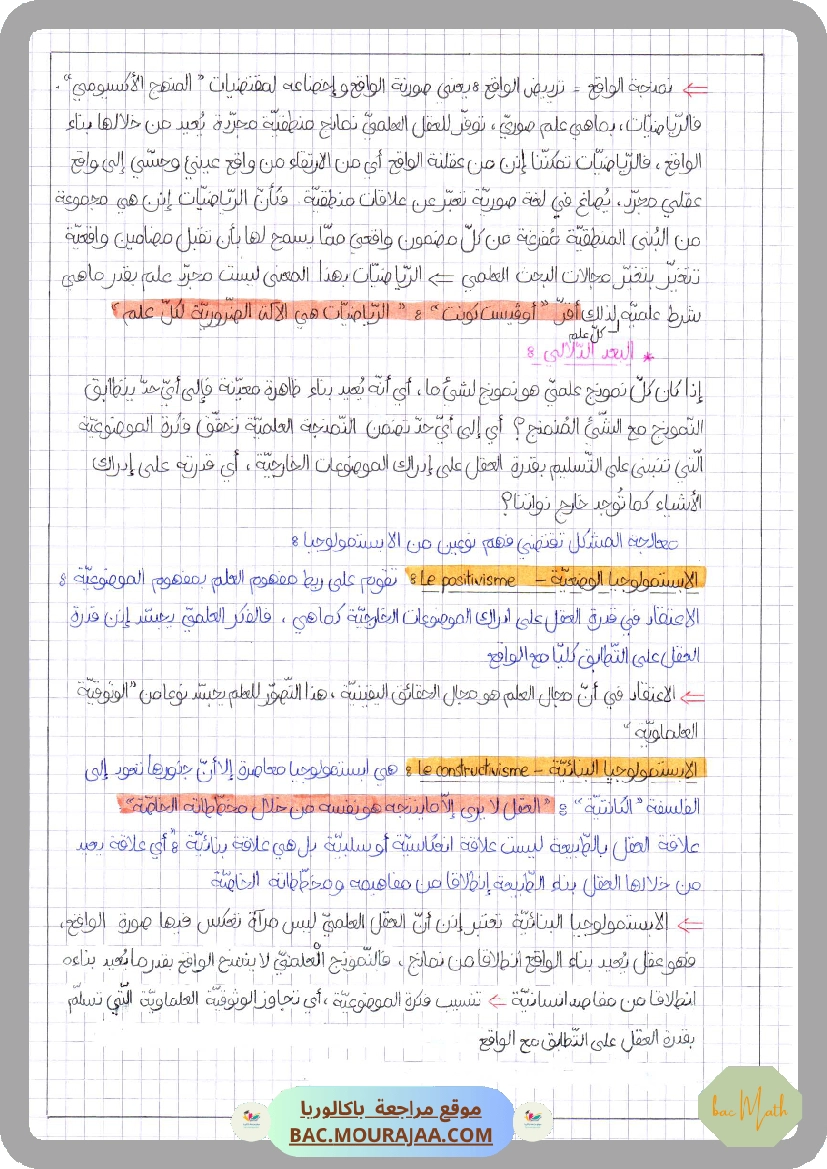 ⇐ نمذجة الواقع = ترييض الواقع : يعني صورنة الواقع وإخضاعه لمقتضيات " المنهج الأكسيومي".
فالرّياضيّات، بماهي علم صوريّ، توفّر للعقل العلميّ نماذج منطقيّة مجرّدة يُعيد من خلالها بناء
الواقع، فالرّياضيّات تمكّننا إذن من عقلنة الواقع أي من الارتقاء من واقع عيني وحسّي إلى واقع
عقلي مجرّد، يُصاغ في لغة صوريّة تعبّر عن علاقات منطقيّة. فكأنّ الرّياضيّات إذن هي مجموعة
من البُنى المنطقيّة مُفرغة من كلّ مضمون واقعي ممّا يسمح لها بأن تقبل مضامين واقعيّة
تتغيّر بتغيّر مجالات البحث العلمي ⇐ الرّياضيّات بهذا المعنى ليست مجرّد علم بقدر ماهي
شرط علميّة لذلك أقرّ "أوڨيست كونت" : " الرّياضيّات هي الآلة الضّروريّة لكلّ علم "
كلّ علم
* البعد الدّلالي :
إذا كان كلّ نموذج علميّ هو نموذج لشيء ما، أي أنّه يُعيد بناء ظاهرة معيّنة فإلى أيّ حدّ يتطابق
النّموذج مع الشّيء المُنمذج ؟ أي إلى أيّ حدّ تضمن النّمذجة العلميّة تحقّق فكرة الموضوعيّة
الّتي تنبني على التّسليم بقدرة العقل على إدراك الموضوعات الخارجيّة، أي قدرته على إدراك
الأشياء كما تُوجد خارج ذواتنا؟
معالجة المشكل تقتضي فهم نوعين من الابستمولوجيا :
الابستمولوجيا الوضعيّة – Le positivisme : تقوم على ربط مفهوم العلم بمفهوم الموضوعيّة :
الاعتقاد في قدرة العقل على ادراك الموضوعات الخارجيّة كماهي، فالفكر العلميّ يجسّد إذن قدرة
العقل على التّطابق كليّا مع الواقع
⇐ الاعتقاد في أنّ مجال العلم هو مجال الحقائق اليقينيّة، هذا التّصوّر للعلم يجسّد نوعا من "الوثوقيّة
العلماويّة "
الابستمولوجيا البنائيّة – Le constructivisme : هي ابستمولوجيا معاصرة إلاّ أنّ جذورها تعود إلى
الفلسفة "الكانتيّة" : "العقل لا يرى إلاّ ما ينتجه هو نفسه من خلال مخطّطاته الخاصّة"
علاقة العقل بالطّبيعة ليست علاقة انعكاسيّة أو سلبيّة بل هي علاقة بنائيّة : أي علاقة يعيد
من خلالها العقل بناء الطّبيعة إنطلاقا من مفاهيمه ومخطّطاته الخاصّة
⇐ الابستمولوجيا البنائيّة تعتبر إذن أنّ العقل العلميّ ليس مرآة تعكس فيها صورة الواقع،
فهو عقل يُعيد بناء الواقع انطلاقا من نماذج، فالنّموذج العلميّ لا ينسخ الواقع بقدر ما يُعيد بناءه
انطلاقا من مقاصد انسانيّة ⇐ تنسيب فكرة الموضوعيّة، أي تجاوز الوثوقيّة العلماويّة الّتي تسلّم
بقدرة العقل على التّطابق مع الواقع
موقع مراجعة باكالوريا
BAC.MOURAJAA.COM
bac Math